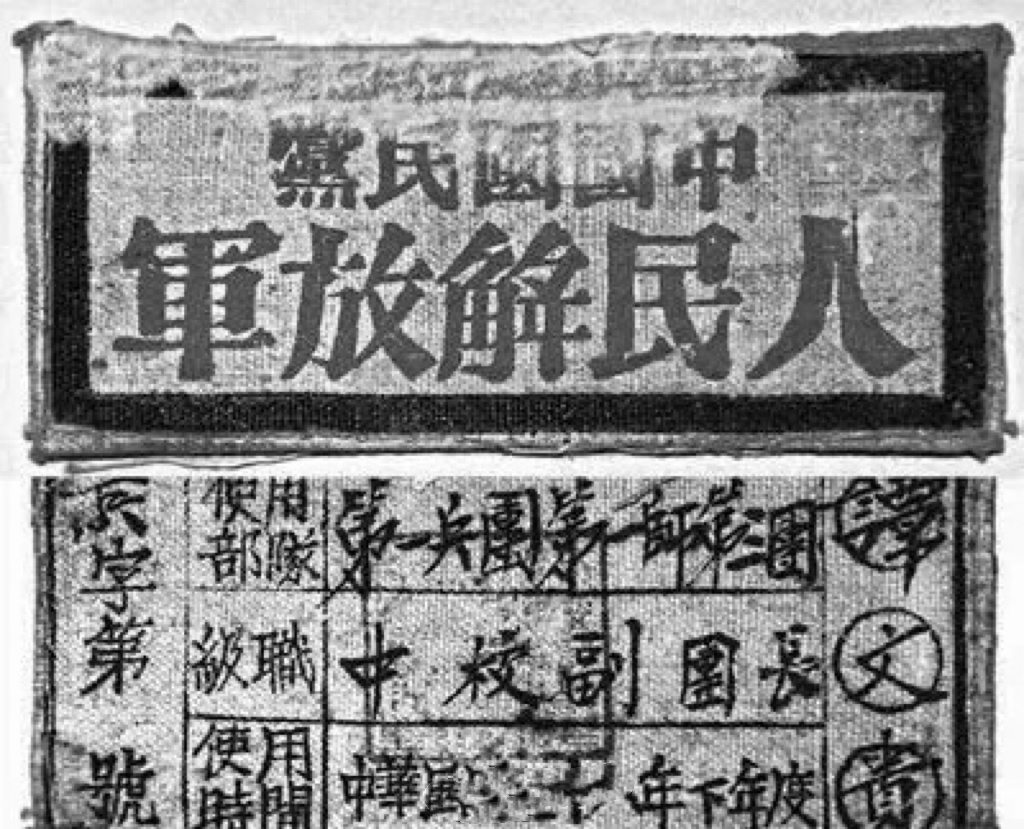 中國國民黨
人民解放軍
使用部隊 第一兵團第一師第三團
級職 中校副團長
使用時間 中華民 年下年度
字第 號
譚文貴